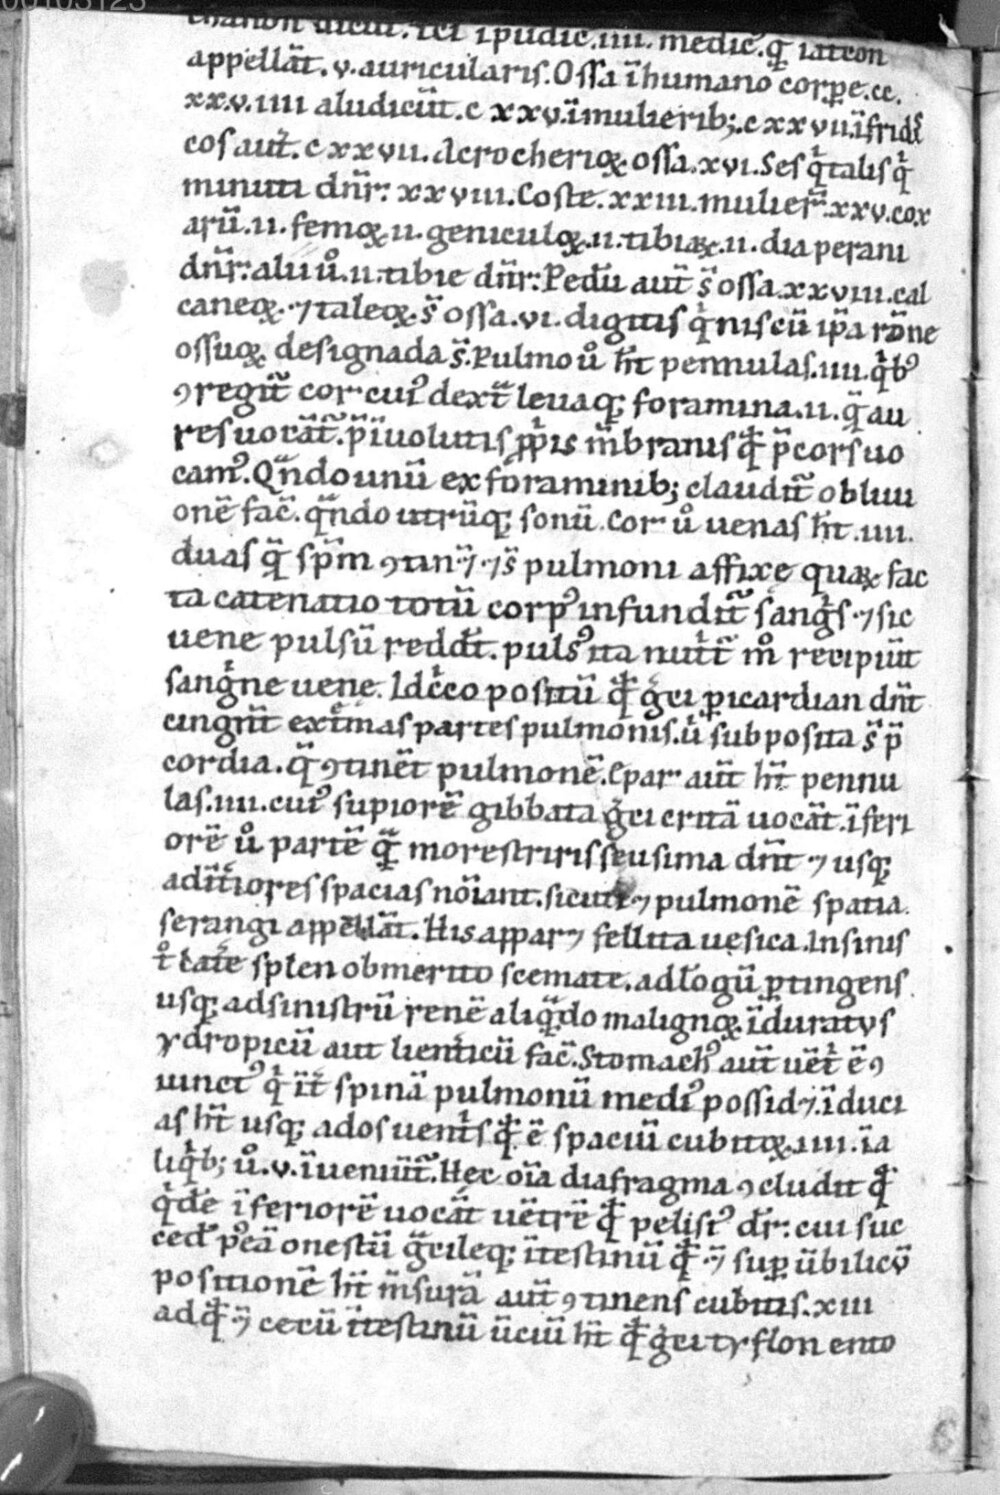 00103123
chanon dicūt. τ̄cī ipudic̄.iiii. medic̄ꝰ.q̄ iatron
appellāt.v.auricularis.Ossa īhumano corꝑe.cc.
xx.v.iiii aludicūt.c xxv.īmulierib;.c xx vii.īfridꝭ
cos aut̄.c xx vii.Acrocherioꝝ.ossa.xvi.Ses qͥtalis qͥ
minuti dn̄r̄:xxviii.Coste.xxiii.mulier̄.xxv.cox
arū.ii.femoꝝ ii.geniculoꝝ.ii.tibiaꝝ.ii.dia perani
dn̄r̄:alii ůͦ.ii.tibie dn̄r̄:Pedū aut̄ s̄ ossa.xxviii.cal
caneoꝝ.⁊taleoꝝ.s̄ ossa.vi.digitis qͥniscū ip̄a rōne
ossuoꝝ designada s̄.Pulmo uͦ ht̄ pennulas.iiii.qͥbꝰ
ꝯregit̄ cor cuiꝰ dext̄ leuaq; foramina.ii.q̄ au
res uocāt̄.p̄īuolutis ꝓpͥis m̄branis qͥ p̄cors uo
camꝰ.Qn̄do unū ex foraminib; claudit̄ obliui
onē fac̄.qn̄do utrūq; sonū.Cor uͦ uenas ht̄.iiii.
duas q̄ sp̄m ꝯtin̄⁊.⁊s̄ pulmoni affixe quaꝝ fac
ta catenatio totū corpꝰ infundit̄ sangͥs.⁊sic
uene pulsū redd̄t.pulsꝰ ita nutͥt̄ mͦ recipiūt
sangͥne uene.Idcͥco positū qͥ gͬci picardian dn̄t
cingn̄t extͥmas partes pulmonis.uͥ subposita s̄ p̄
cordia.q̄ ꝯtinēt pulmonē.Epar aut̄ ht̄ pennu
las.iiii.cuiꝰ supiorē gibbata gͬci critā uocāt.īferi
orē uͦ partē q̄ morestriris seu sima dn̄t ⁊ usq;
adīt̄iores spacias nōīant.sicuti ⁊ pulmonē spatia.
serangi appellāt.His appar⁊ fellita uesica.Insinis
tͦ latͤe splen obmerito scemate.adlōgū ꝑtingens.
usq; adsinistrū renē aliqͣdo malignoꝝ.īduratvs
ydropicū aut lientͥicū fac̄.Stomachꝰ aut̄ uēt̄ ē ꝯ
iunctꝰ qͥ īt̄ spinā pulmonū mediꝰ possid⁊.īduci
as ht̄ usq; ados uentͥs qͥ ē spaciū cubitoꝝ.iiii.īa
liqͥb; uͦ.v.īueniūt̄.Hęc oīa diafragma ꝯcludit qͥ
qͥdē īferiorē uocāt uētrē qͥ pelisꞇꝰ dr̄:cui suc
ced̄ pꝰeā onestū gͬcileq; ītestinū qͥ ⁊ sup ūbilicū
positionē ht̄ m̄surā aut̄ ꝯtinens cubitis.xiii
adqͥ ⁊ cecū ītestinū ūciū ht̄ qͥ gͬci tyflon ento